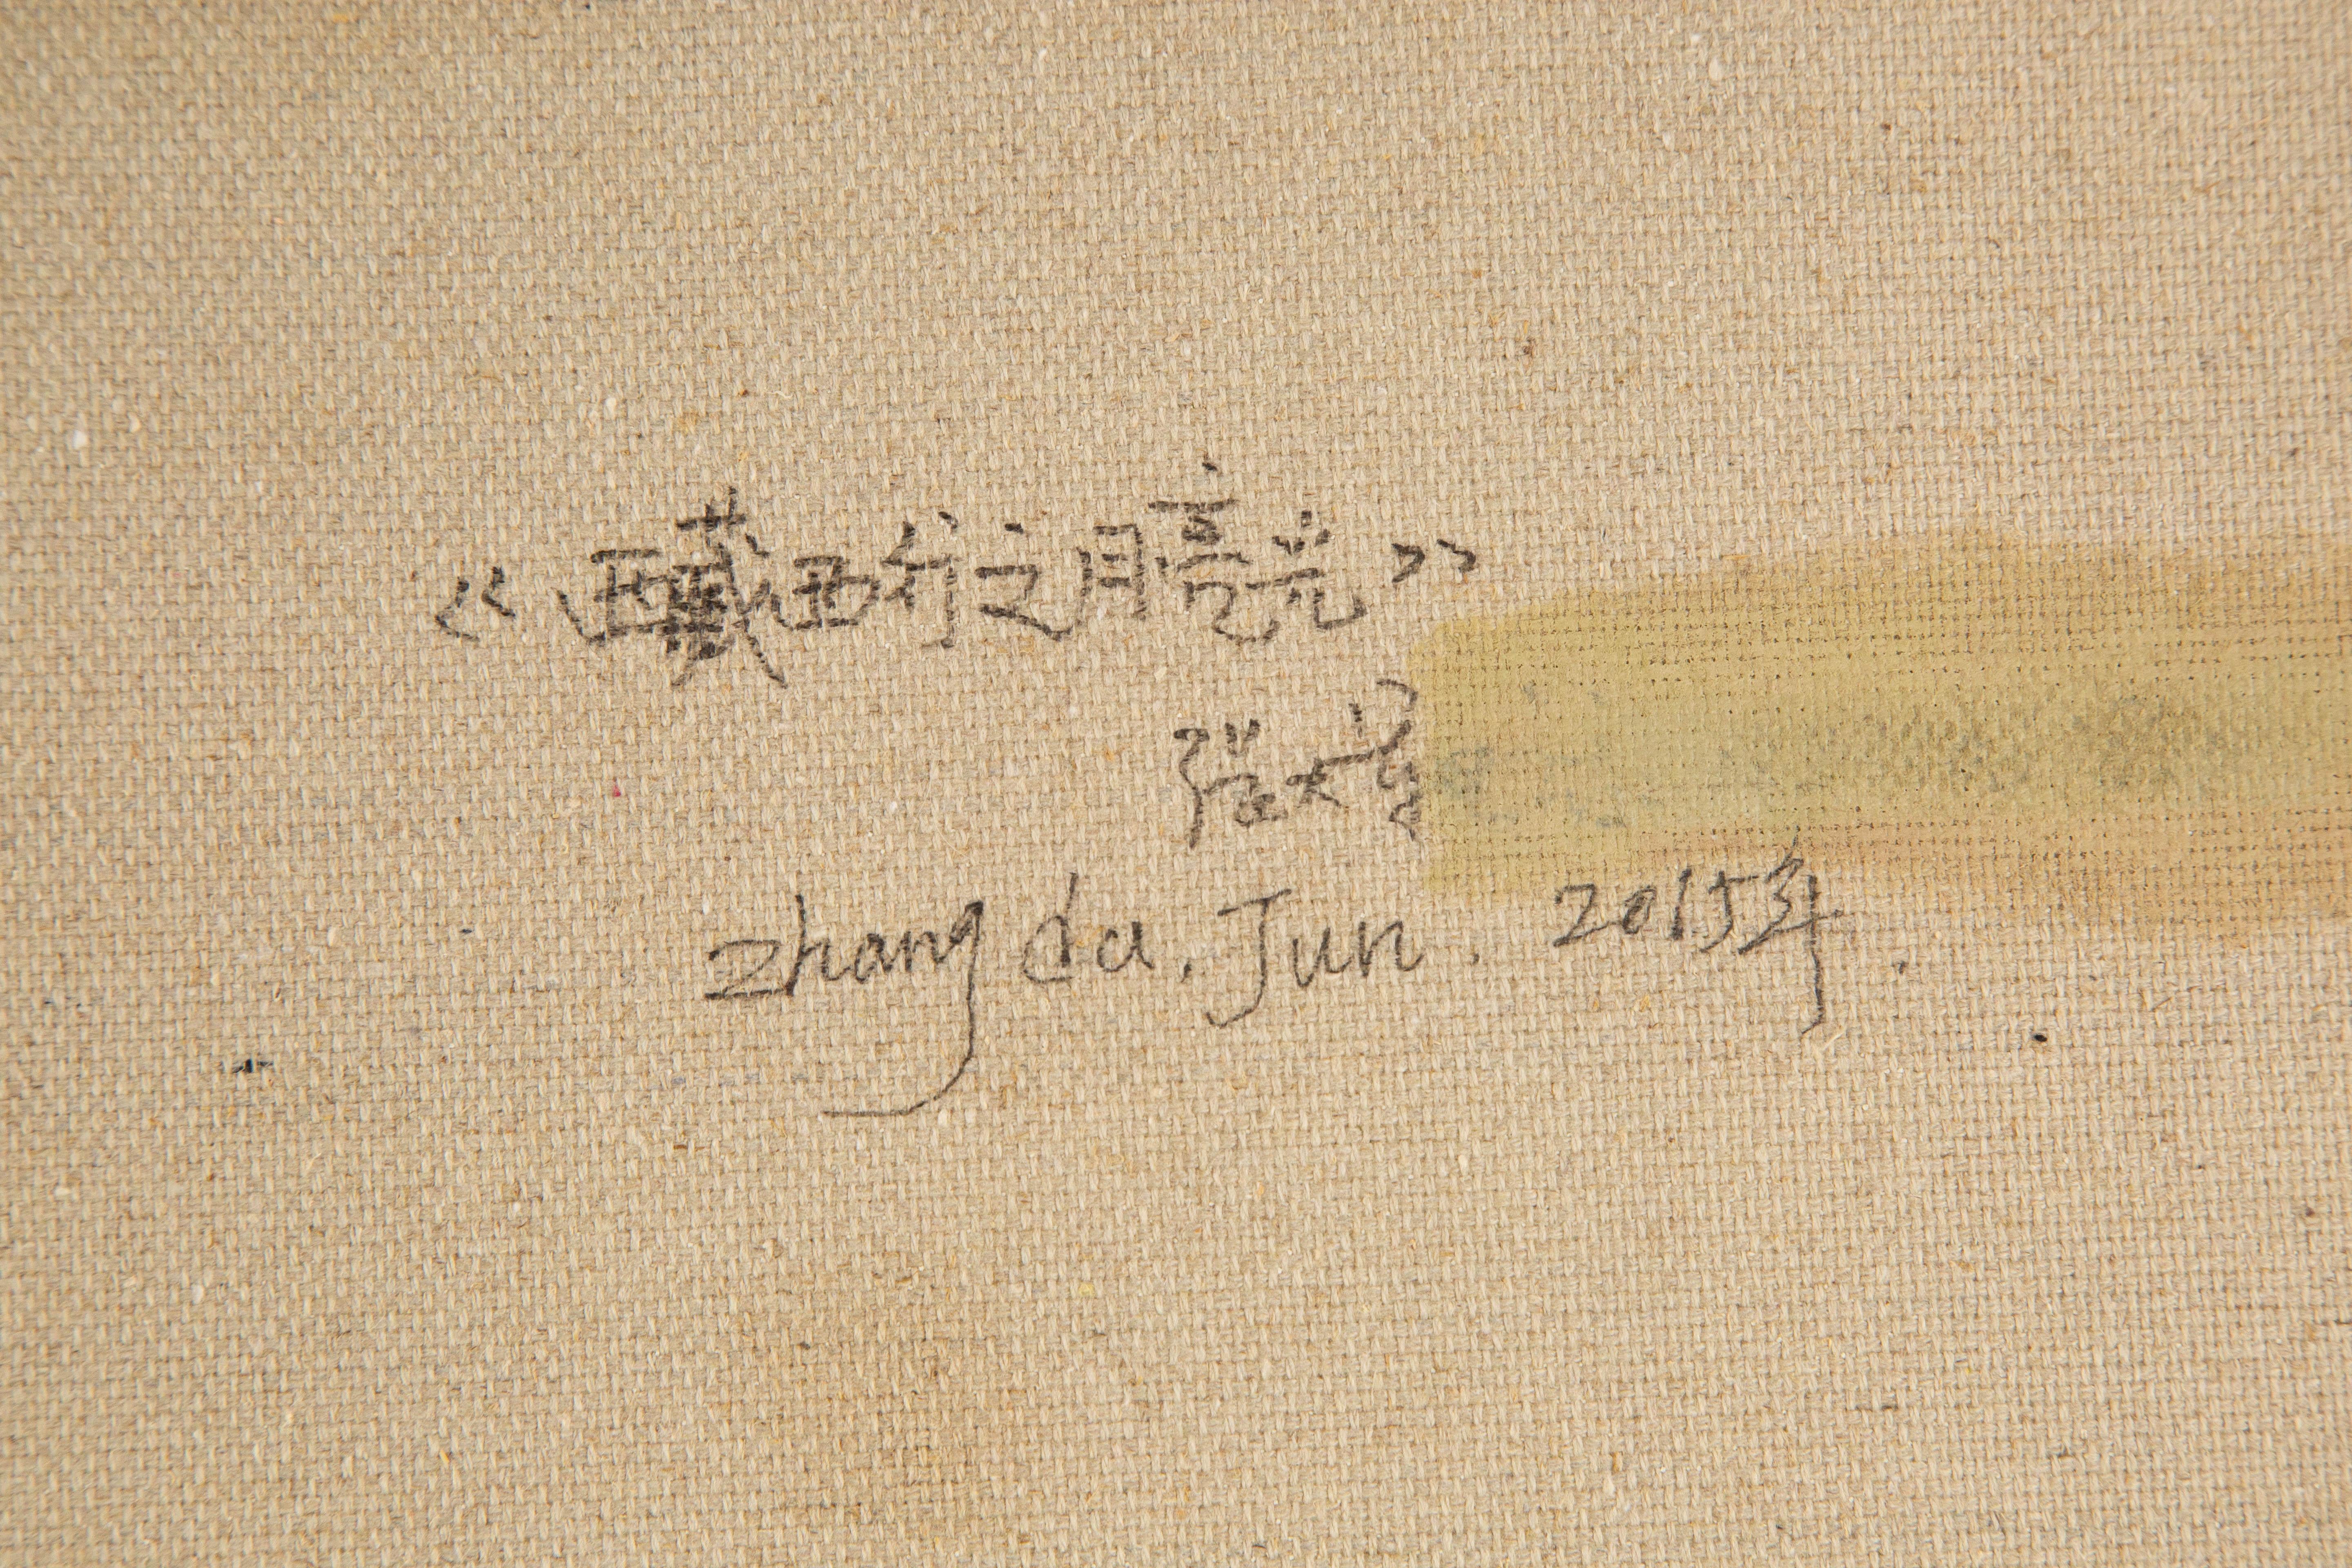 《西藏西行之月亮光》
张大
zhang da. Jun. 2015年.